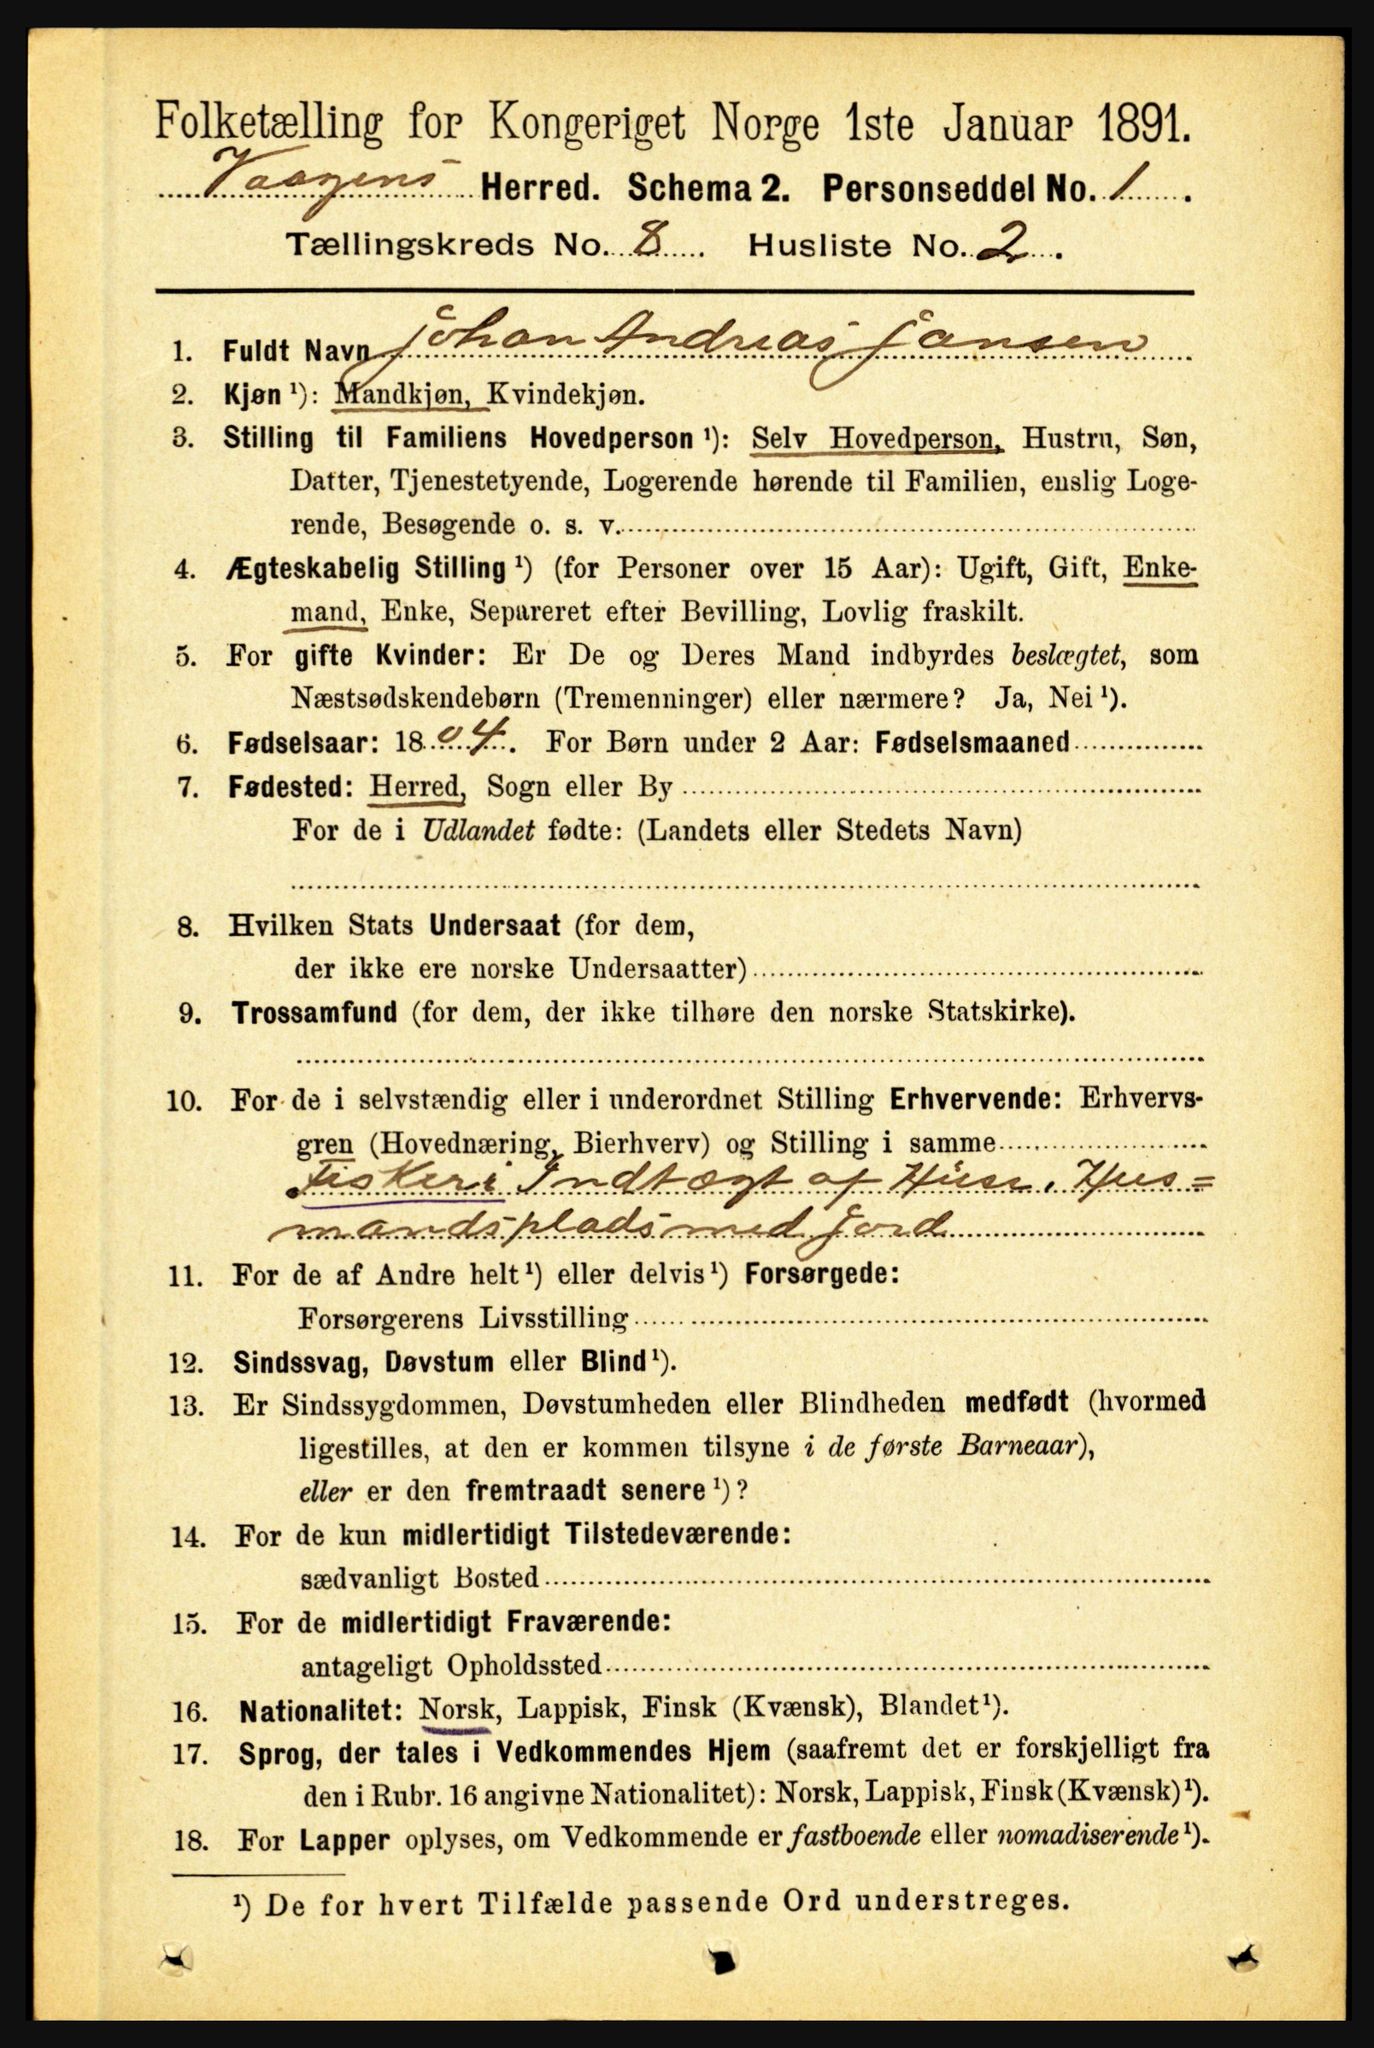 Folketælling for Kongeriget Norge 1ste Januar 1891.
Vaagens Herred. Schema 2. Personseddel No. 1.
Tællingskreds No. 8. Husliste No. 2.
1. Fuldt Navn Johan Andreas Jansen
2. Kjøn ¹): Mandkjøn, Kvindekjøn.
3. Stilling til Familiens Hovedperson ¹): Selv Hovedperson, Hustru, Søn,
Datter, Tjenestetyende, Logerende hørende til Familien, enslig Loge-
rende, Besøgende o. s. v.
4. Ægteskabelig Stilling ¹) (for Personer over 15 Aar): Ugift, Gift, Enke-
mand, Enke, Separeret efter Bevilling, Lovlig fraskilt.
5. For gifte Kvinder: Er De og Deres Mand indbyrdes beslægtet, som
Næstsødskendebørn (Tremenninger) eller nærmere? Ja, Nei ¹).
6. Fødselsaar: 1804. For Børn under 2 Aar: Fødselsmaaned
7. Fødested: Herred, Sogn eller By
For de i Udlandet fødte: (Landets eller Stedets Navn)
8. Hvilken Stats Undersaat (for dem,
der ikke ere norske Undersaatter)
9. Trossamfund (for dem, der ikke tilhøre den norske Statskirke).
10. For de i selvstændig eller i underordnet Stilling Erhvervende: Erhvervs-
gren (Hovednæring, Bierhverv) og Stilling i samme
Fiskeri Indtægt af Huse. Hus=
mandsplads med Jord
11. For de af Andre helt ¹) eller delvis ¹) Forsørgede:
Forsørgerens Livsstilling
12. Sindssvag, Døvstum eller Blind ¹).
13. Er Sindssygdommen, Døvstumheden eller Blindheden medfødt (hvormed
ligestilles, at den er kommen tilsyne i de første Barneaar),
eller er den fremtraadt senere ¹)?
14. For de kun midlertidigt Tilstedeværende:
sædvanligt Bosted
15. For de midlertidigt Fraværende:
antageligt Opholdssted
16. Nationalitet: Norsk, Lappisk, Finsk (Kvænsk), Blandet ¹).
17. Sprog, der tales i Vedkommendes Hjem (saafremt det er forskjelligt fra
den i Rubr. 16 angivne Nationalitet): Norsk, Lappisk, Finsk (Kvænsk) ¹).
18. For Lapper oplyses, om Vedkommende er fastboende eller nomadiserende ¹).
¹) De for hvert Tilfælde passende Ord understreges.